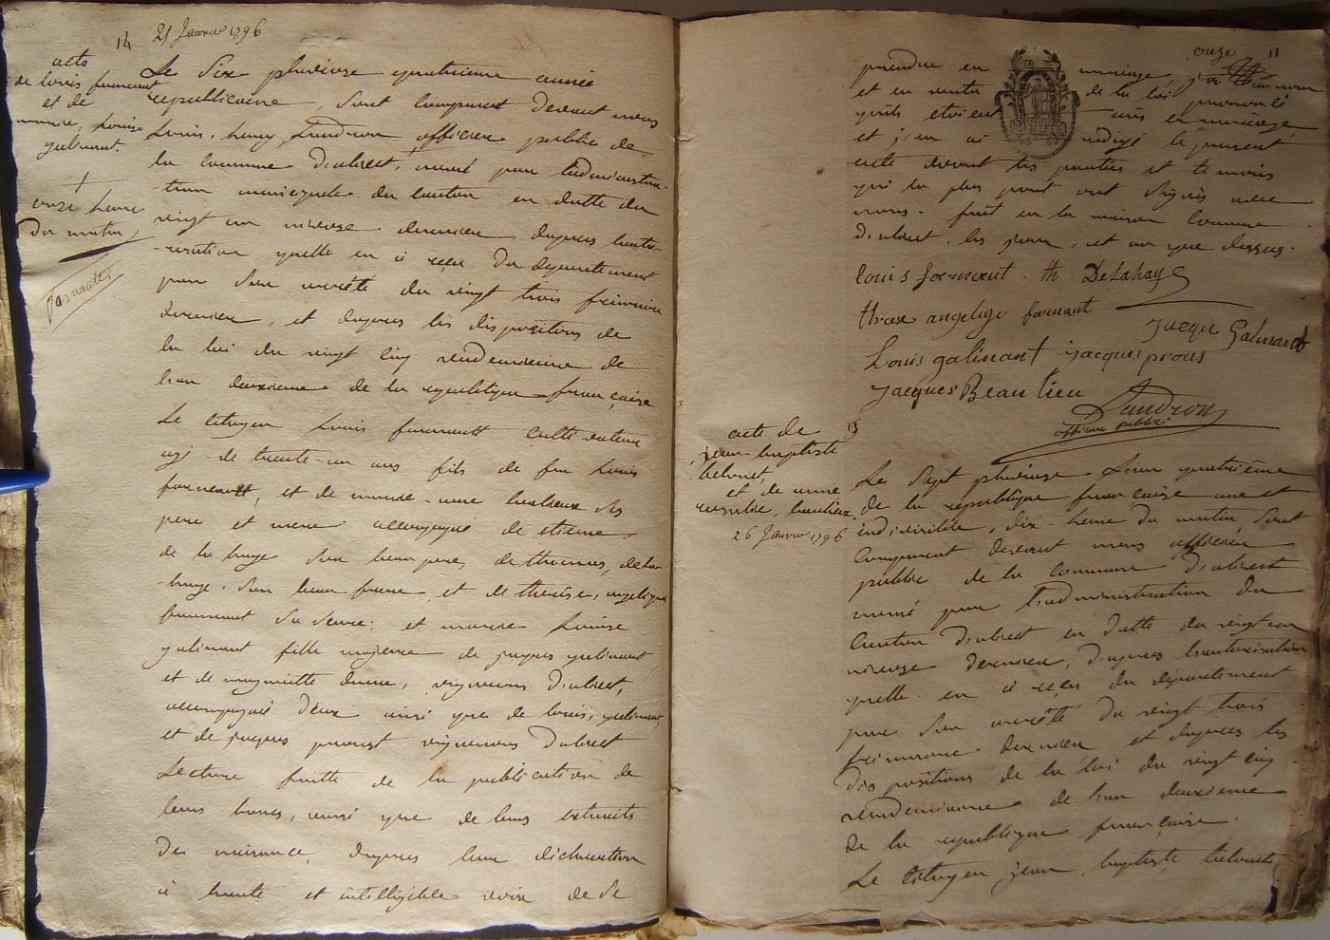 14 25 Janvier 1796
acte
de louis formeaut
et de
marie, louise
galinant.
+
onze heure
du matin,
Parnantes
Le Six pluviose quatrieme année
republicaine, Sont comparus devant nous
Louis, henry Landron officiere public de
la commune d'
nommé par ladministra-
-tion municipale du canton en datte du
vingt un nivose derniere, dapres lauto-
-risation quelle en a reçu du departement
par Son arrêté du vingt trois frimaire
dernier, et dapres les dispositions de
la loi du vingt cinq vendemiaire de
lan deuxieme de la republique francaise
Le citoyen Louis formeautt cultivateur
agé de trente-un ans fils de feu Louis
formeautt, et de marie-anne Ses
pere et mere accompagné de etienne
de la haye Son beau pere, de thomas, dela-
-haye. Son beau frere, et de therèse, angelique
formeaut Sa Seure: et marie Louise
galinant fille majeure de jaques galinant
et de margueritte vignerons d'
accompagnée d'eux ainsi que de louis, galinant
et de jaques proust vignerons d'
Lecture faitte de la publication de
leurs bancs, ainsi que de leurs extraits
de naisance, dapres leur déclaration
à haute et intelligible voix de Se
onze 11
prendre en mariage, j'ai
et en vertu de la loi prononcé
quils etoient unis en mariage,
et j'en ai redigé le present
acte devant les parties et temoins
qui le plus part ont Signés avec
nous. fait en la maison Commune
les jour, et an que dessus.
louis formeaut. th DeLahaye
therese angelique formeaut
Jacque Galinandt
Louis galinant jacques prous
jacques Beaulieu
Landron
officier public
9
acte de
jean-baptiste
et de anne
26 Janvier 1796
Le Sept pluviose Lan quatrième
de la république francaise une et
indivisible, dix-heure du matin, Sont
Comparut devant nous officier
public de la commune
nommé par l'administration du
Canton en datte du vingt-un
nivose derniere, dapres lautorisation
quelle en a reçu du département
par Son arrêté du vingt trois
frimaire derniere et dapres les
dispositions de la loi du vingt cinq
vendemiaire de lan deuxieme
de la republique francaise.
Le Citoyen jean, baptiste,